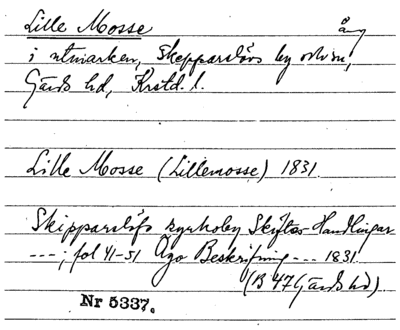 Lille Mosse äng
i utmarken, Skepparslövs by och sn,
Gärds hd, Krstd. l.
Lille Mosse (Lillemosse) 1831
Skipparslöfs kyrkoby Skiftes-Handlingar
---; fol 41-51 Ägo Beskrifning --- 1831.
(B 47 Gärds hd)
Nr 5337.